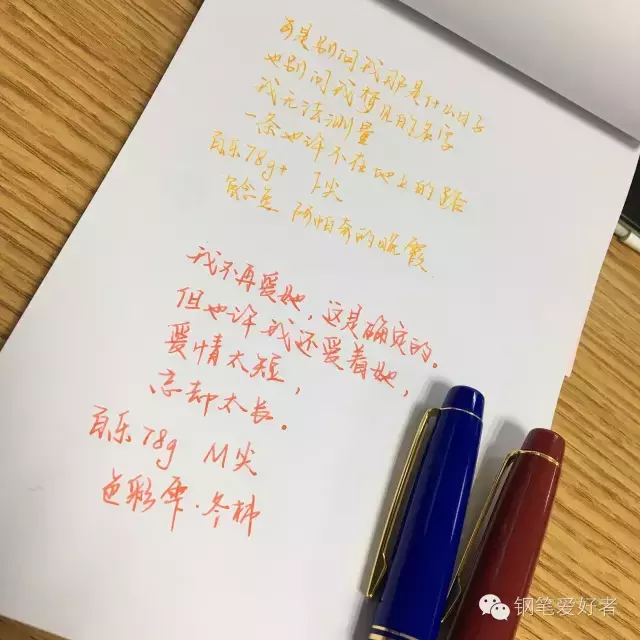 可是别问我那是什么日子
也别问我暂儿的名字
我无法测量
一条也许不在地上的路
百乐78g+ F尖
的晚霞
我不再爱她，这是确定的。
但也许我还爱着她，
爱情太短，
忘却太长。
百乐78g M尖
色彩雫·冬柿
钢笔爱好者